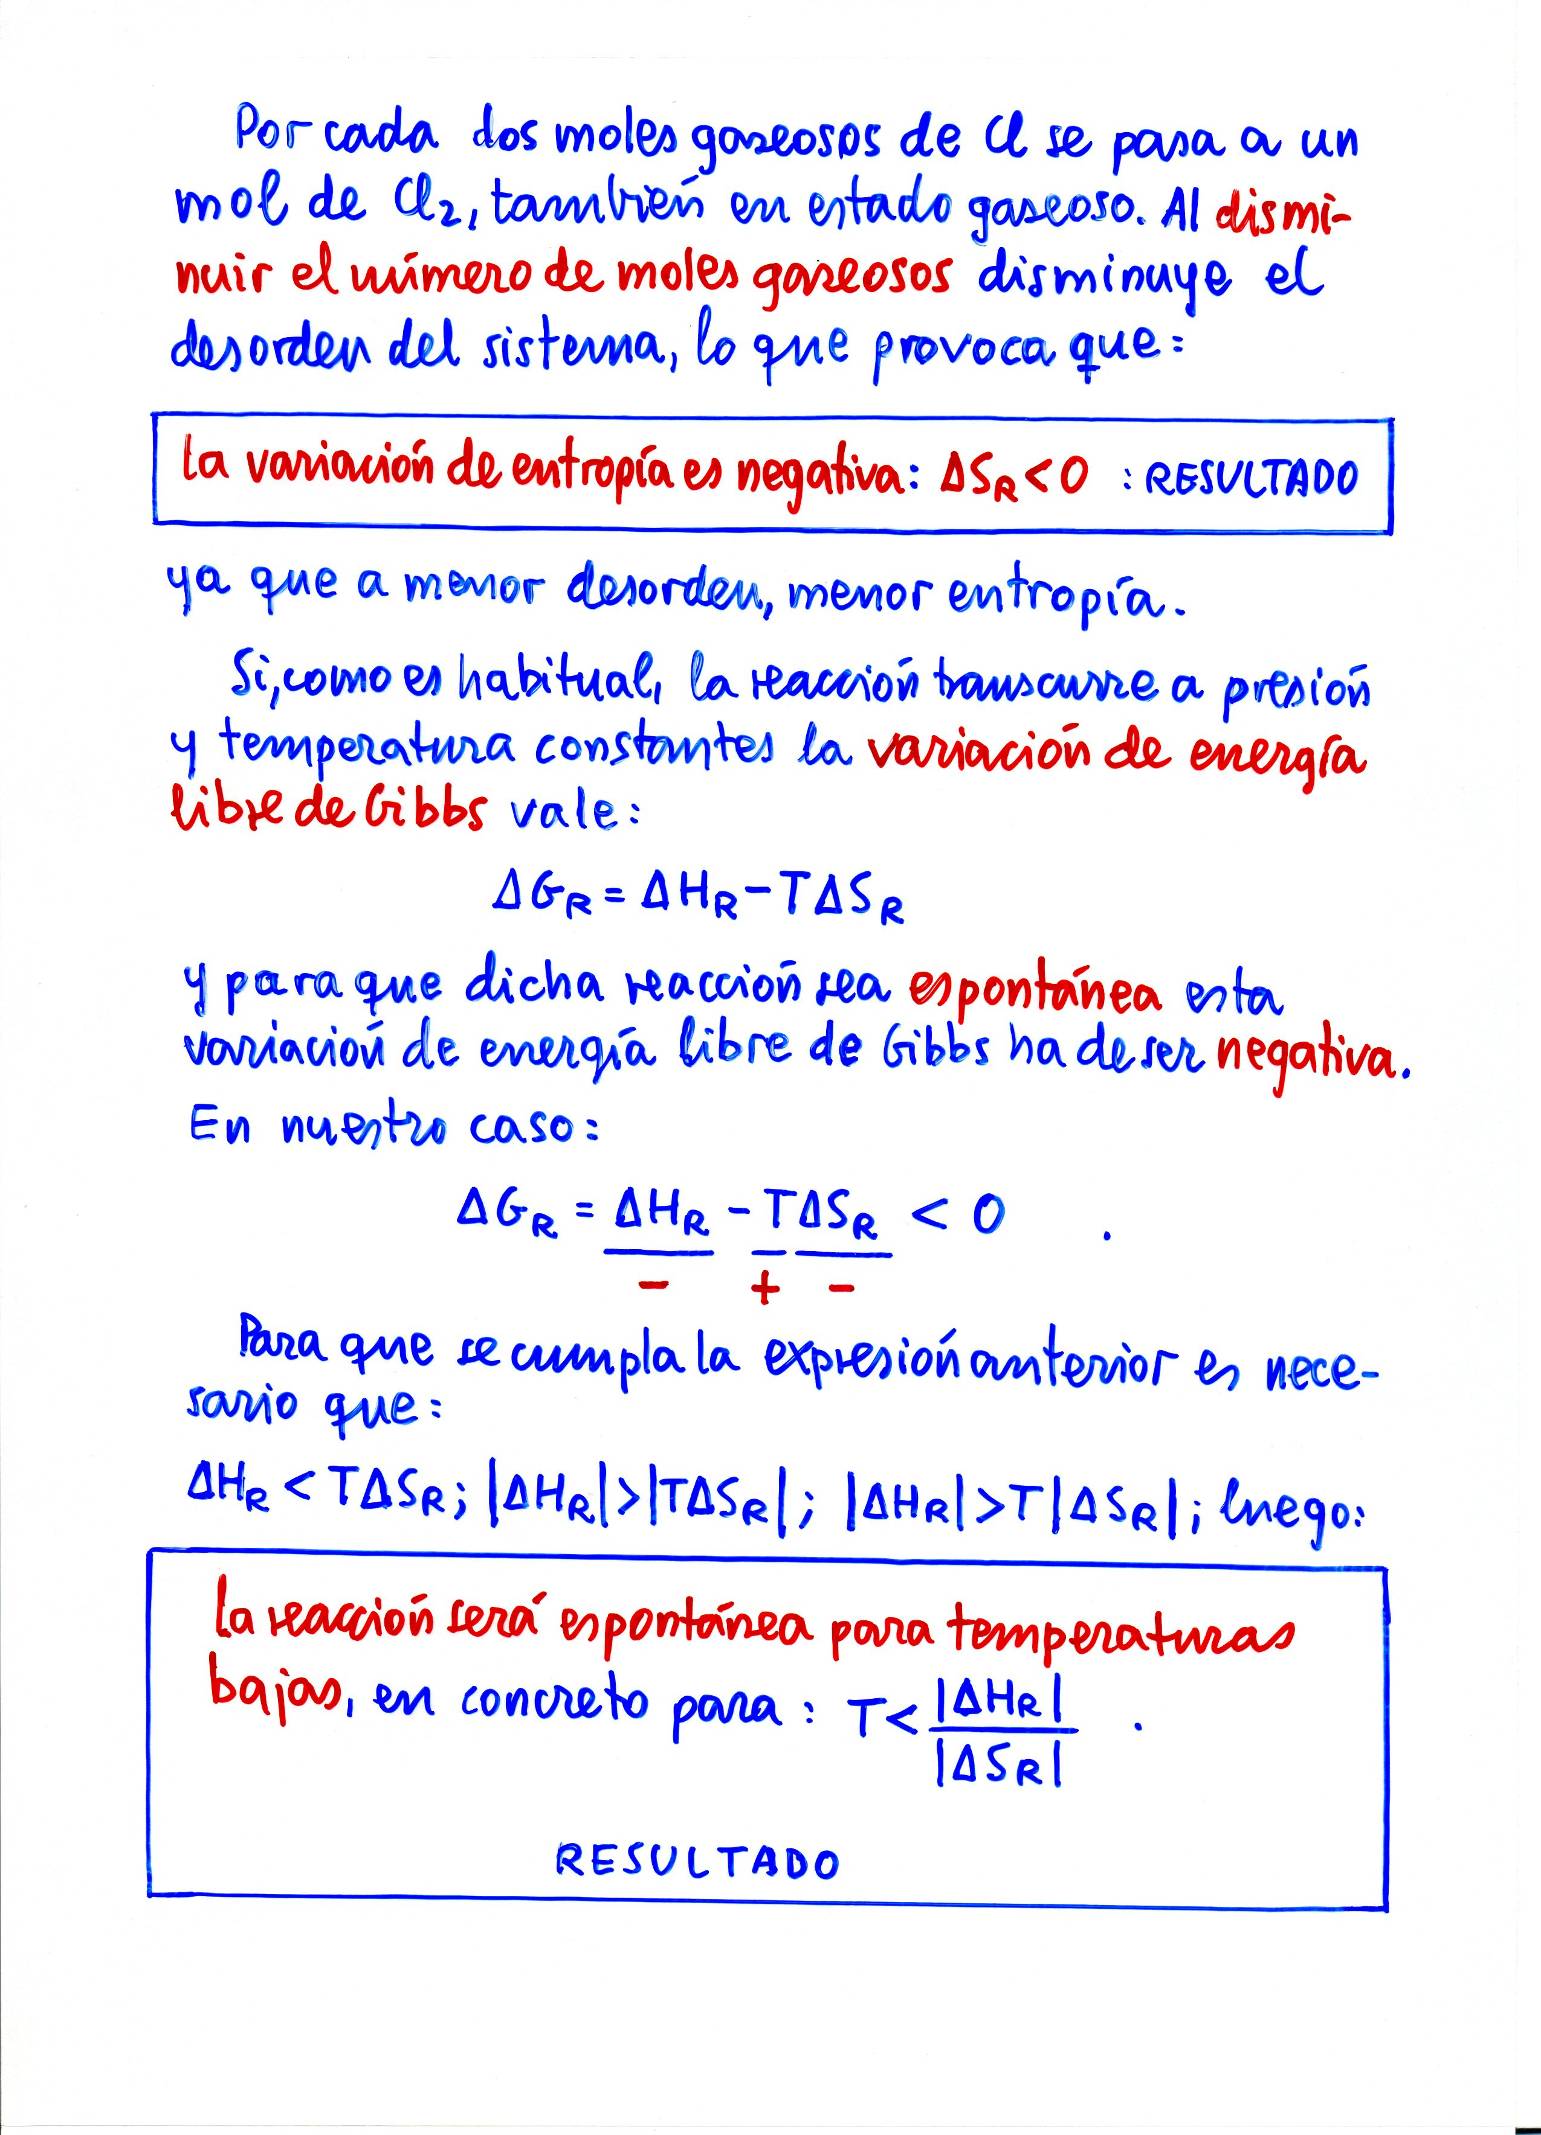 Por cada dos moles gaseosos de Cl se pasa a un
mol de Cl₂, también en estado gaseoso. Al dismi-
nuir el número de moles gaseosos disminuye el
desorden del sistema, lo que provoca que:
La variación de entropía es negativa: ΔS_R < 0 : RESULTADO
ya que a menor desorden, menor entropía.
Si, como es habitual, la reacción transcurre a presión
y temperatura constantes la variación de energía
libre de Gibbs vale:
ΔG_R = ΔH_R - TΔS_R
y para que dicha reacción sea espontánea esta
variación de energía libre de Gibbs ha de ser negativa.
En nuestro caso:
ΔG_R = ΔH_R - TΔS_R < 0 .
- + -
Para que se cumpla la expresión anterior es nece-
sario que:
ΔH_R < TΔS_R; |ΔH_R| > |TΔS_R|; |ΔH_R| > T|ΔS_R|; luego:
La reacción será espontánea para temperaturas
bajas, en concreto para: T < |ΔH_R| / |ΔS_R| .
RESULTADO